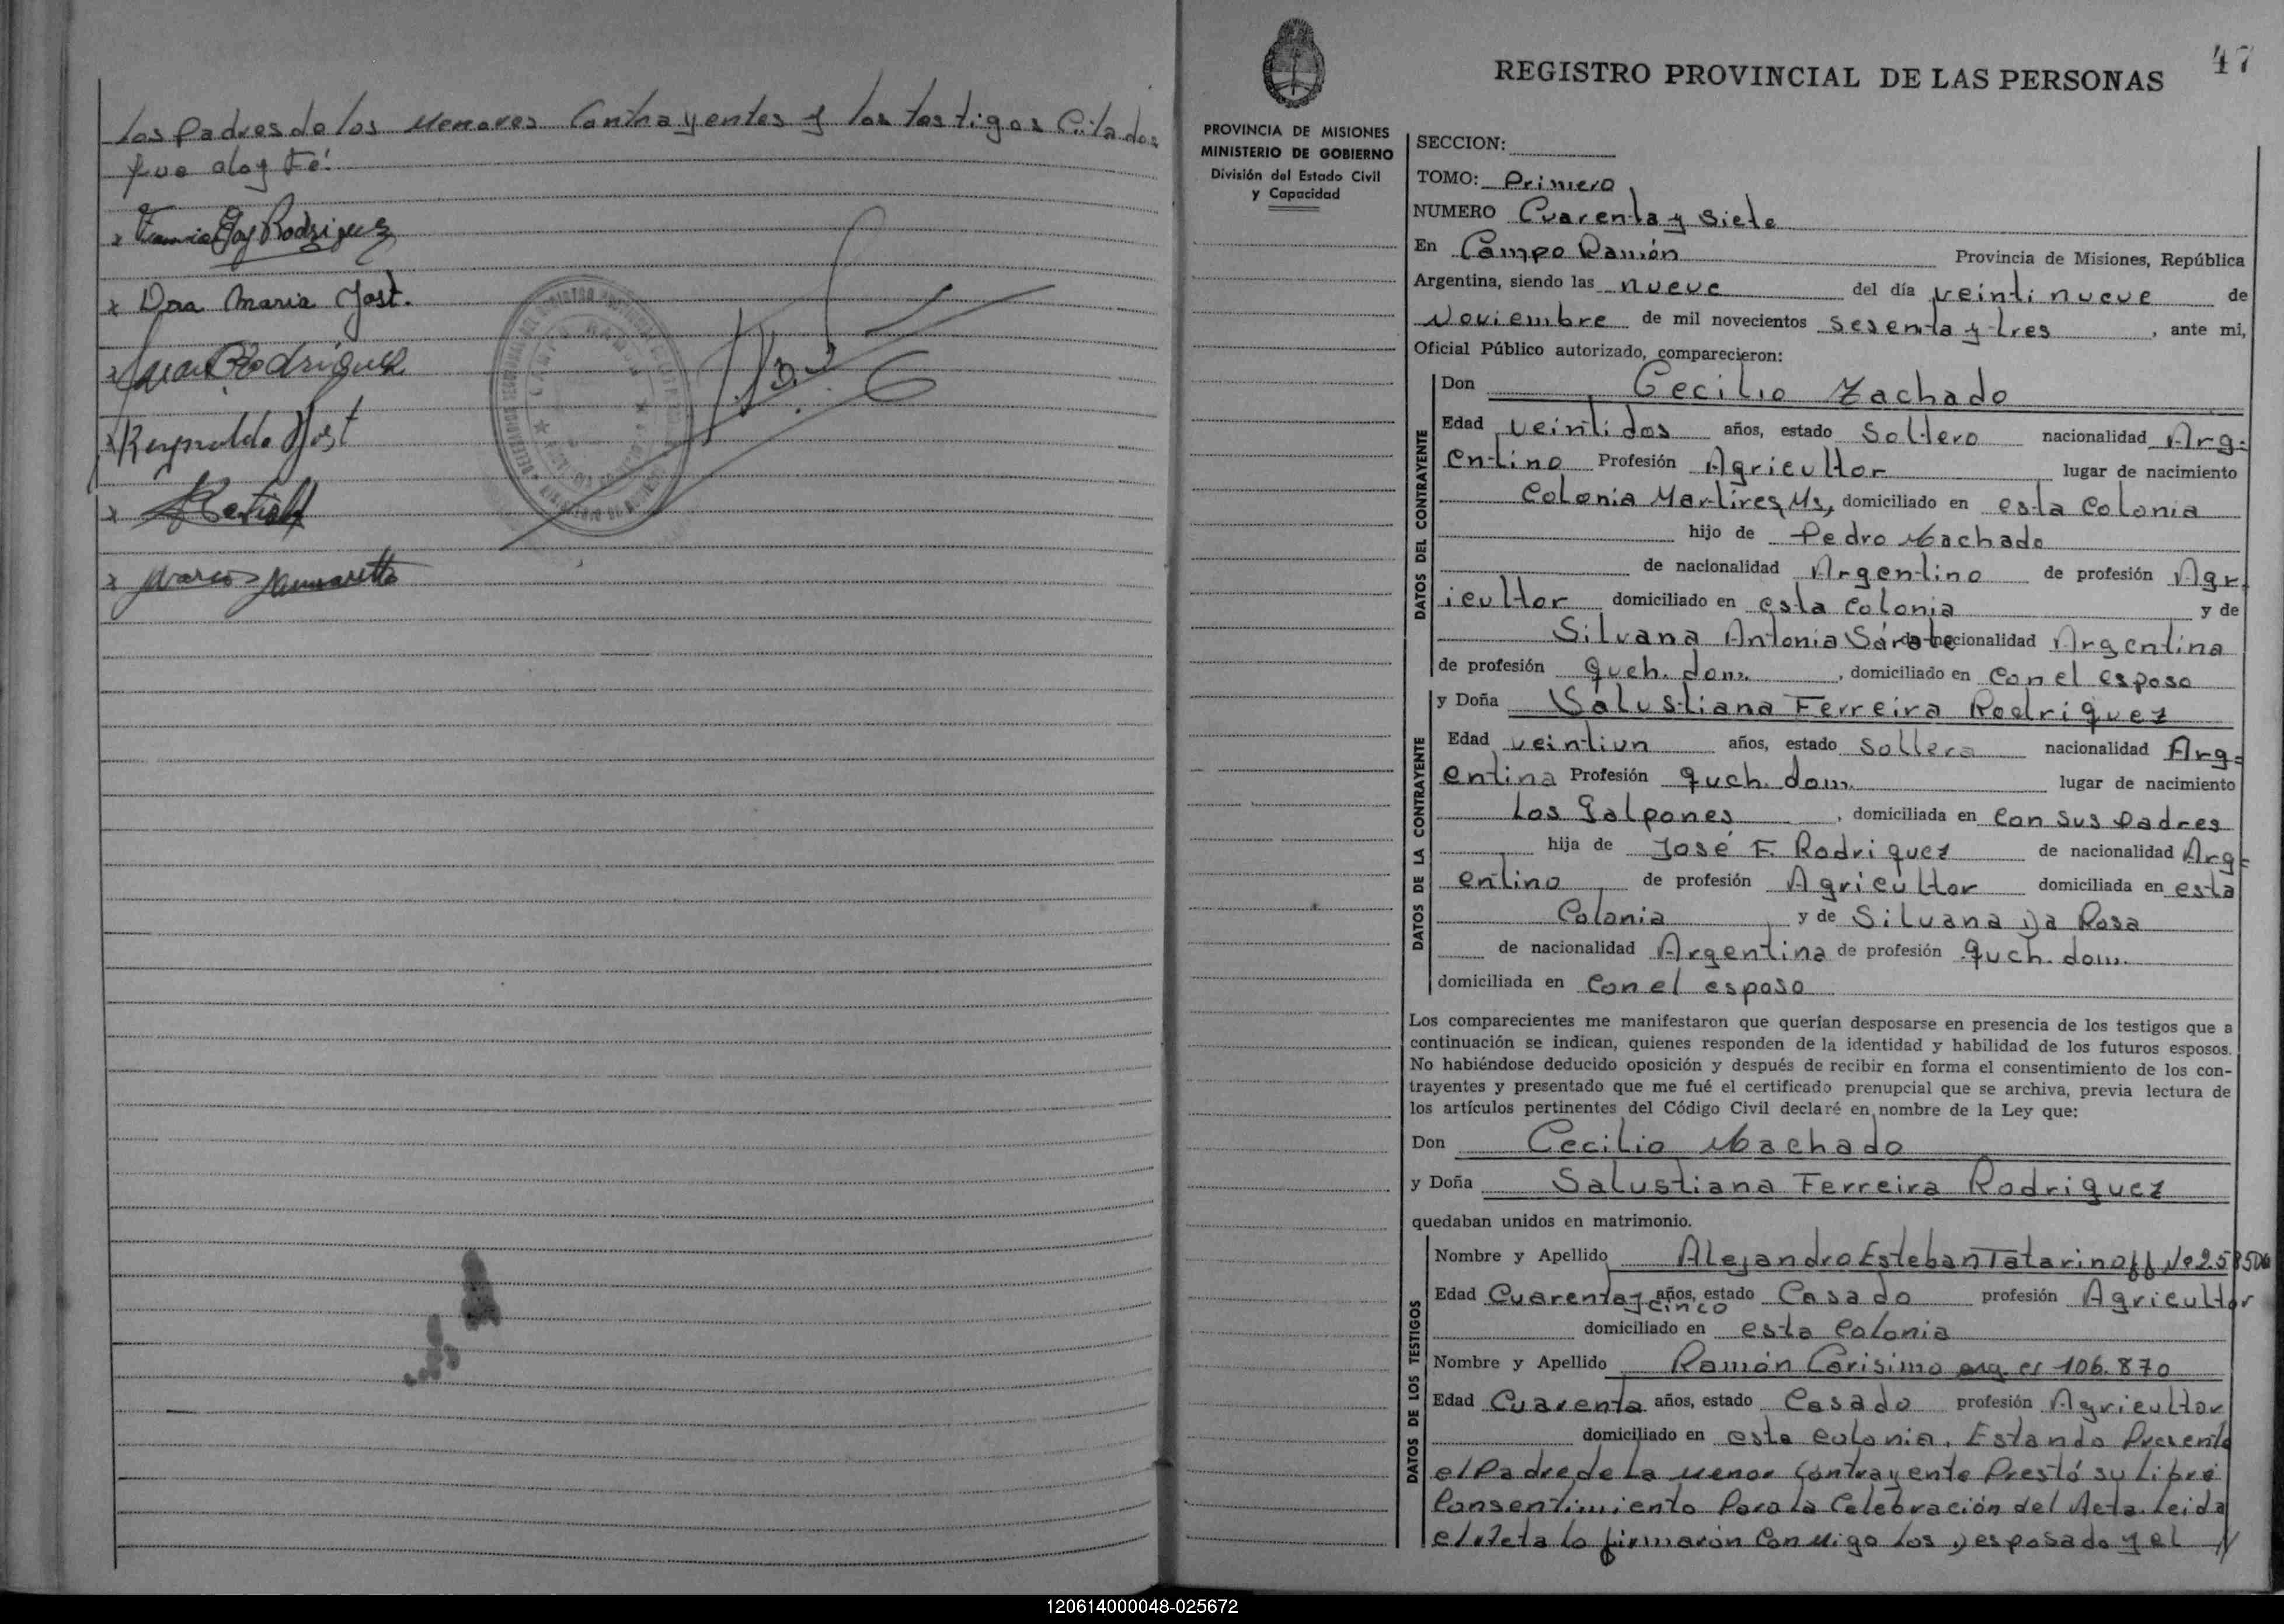 los Padres de los Menores Contrayentes y los testigos Citados
que doy Fé:
Rodriguez
x Dna Maria Jost.
x Juan Rodriguez
x Reynoldo Jost
x
x Marcos
47
REGISTRO PROVINCIAL DE LAS PERSONAS
PROVINCIA DE MISIONES
MINISTERIO DE GOBIERNO
División del Estado Civil
y Capacidad
SECCION:
TOMO: Primero
NUMERO Cuarenta y Siete
En Campo Ramón Provincia de Misiones, República
Argentina, siendo las nueve del día veinti nueve de
Noviembre de mil novecientos sesenta y tres, ante mi,
Oficial Público autorizado, comparecieron:
DATOS DEL CONTRAYENTE
Don Cecilio Machado
Edad veintidos años, estado Soltero nacionalidad Arg-
entino Profesión Agricultor lugar de nacimiento
Colonia Martires, Ms, domiciliado en esta Colonia
hijo de Pedro Machado
de nacionalidad Argentino de profesión Agr-
icultor domiciliado en esta Colonia y de
Silvana Antonia Sárate de nacionalidad Argentina
de profesión queh. dom. , domiciliado en Con el esposo
DATOS DE LA CONTRAYENTE
y Doña Salustiana Ferreira Rodriguez
Edad veintiun años, estado Soltera nacionalidad Arg-
entina Profesión queh. dom. lugar de nacimiento
Los Galpones , domiciliada en Con sus Padres
hija de José F. Rodriguez de nacionalidad Arg-
entino de profesión Agricultor domiciliada en esta
Colonia y de Silvana Da Rosa
de nacionalidad Argentina de profesión queh. dom.
domiciliada en Con el esposo
Los comparecientes me manifestaron que querían desposarse en presencia de los testigos que a
continuación se indican, quienes responden de la identidad y habilidad de los futuros esposos.
No habiéndose deducido oposición y después de recibir en forma el consentimiento de los con-
trayentes y presentado que me fué el certificado prenupcial que se archiva, previa lectura de
los artículos pertinentes del Código Civil declaré en nombre de la Ley que:
Don Cecilio Machado
y Doña Salustiana Ferreira Rodriguez
quedaban unidos en matrimonio.
DATOS DE LOS TESTIGOS
Nombre y Apellido Alejandro Esteban Tatarinoff
Edad Cuarenta y cinco años, estado Casado profesión Agricultor
domiciliado en esta Colonia
Nombre y Apellido Ramón Carisimo 106.870
Edad Cuarenta años, estado Casado profesión Agricultor
domiciliado en esta Colonia. Estando Presente
el Padre de La Menor Contrayente Prestó su Libre
Consentimiento Para la Celebración del Acta. Leida
el Acta lo firmarón Con Migo los desposado y el //
120614000048-025672